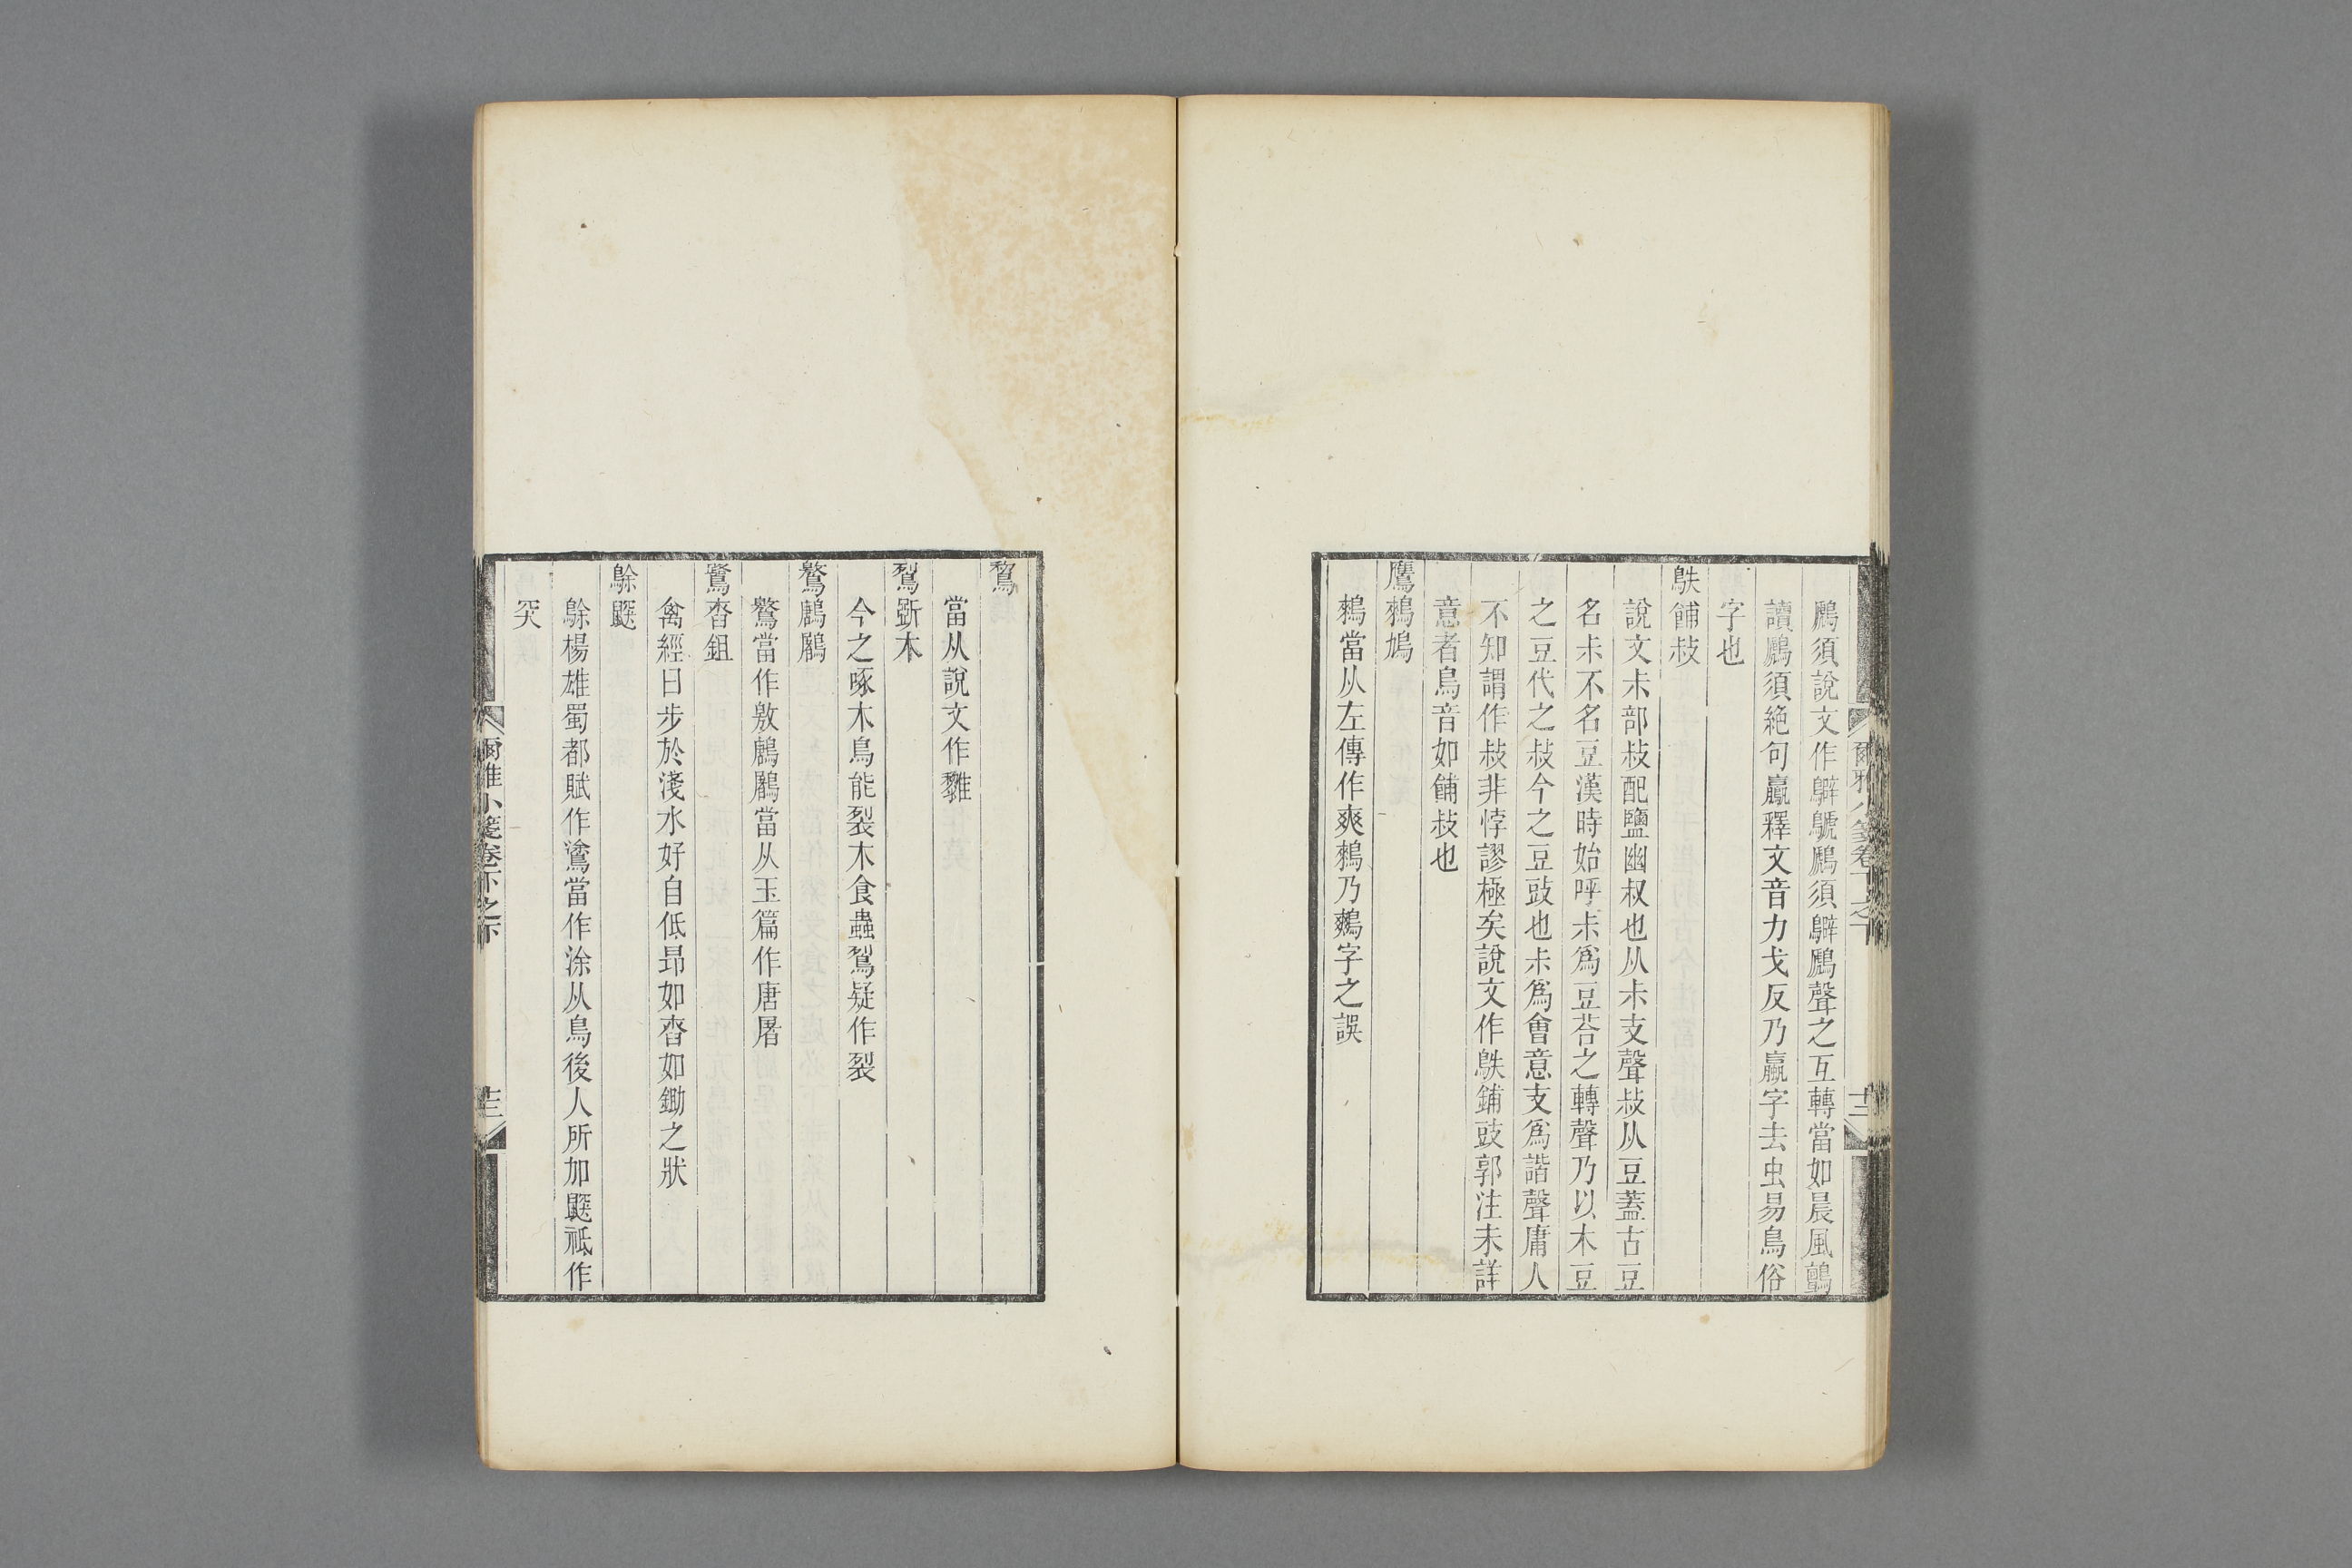 鸍須說文作鸊鷉鸍須鸊鷉聲之互轉當如晨風鸇
讀鸍須絶句鸁釋文音力戈反乃蠃字去虫易鳥俗
字也
鴩餔敊
說文尗部敊配鹽幽叔也从尗支聲敊从豆蓋古豆
名尗不名豆漢時始呼尗爲豆荅之轉聲乃以木豆
之豆代之敊今之豆豉也尗爲會意支爲諧聲庸人
不知謂作敊非悖謬極矣說文作鴩鋪豉郭注未詳
意者鳥音如餔敊也
鷹鶆鳩
鶆當从左傳作爽鶆乃鷞字之誤
爾雅小箋卷下之下
十二
鵹
當从說文作雞
鴷斲木
今之啄木鳥能裂木食蟲鴷疑作裂
鷔鶶鷵
鷔當作敫鶶鷵當从玉篇作唐屠
鷺舂鉏
禽經曰步於淺水好自低昻如舂如鋤之狀
鵌鼵
鵌楊雄蜀都賦作鵌當作涂从鳥後人所加鼵祗作
突
爾雅小箋卷下之下
十三